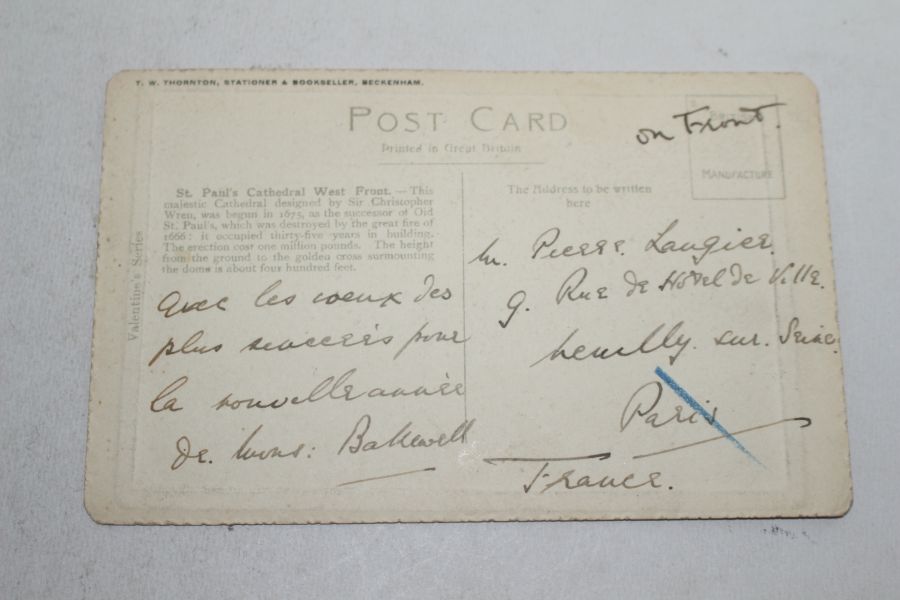 T. W. THORNTON, STATIONER & BOOKSELLER, BECKENHAM.
POST CARD
Printed in Great Britain
on Front.
MANUFACTURE
Valentine's Series
St. Paul's Cathedral West Front. — This
majestic Cathedral designed by Sir Christopher
Wren, was begun in 1675, as the successor of Old
St. Paul's, which was destroyed by the great fire of
1666: it occupied thirty-five years in building.
The erection cost one million pounds. The height
from the ground to the golden cross surmounting
the dome is about four hundred feet.
The Address to be written
here
avec les voeux des
plus sincères pour
la nouvelle année
de. Mons: Bakewell
M. Pierre. Laugier
9. Rue de Hôtel de Ville.
Neuilly. sur. Seine.
Paris
France.